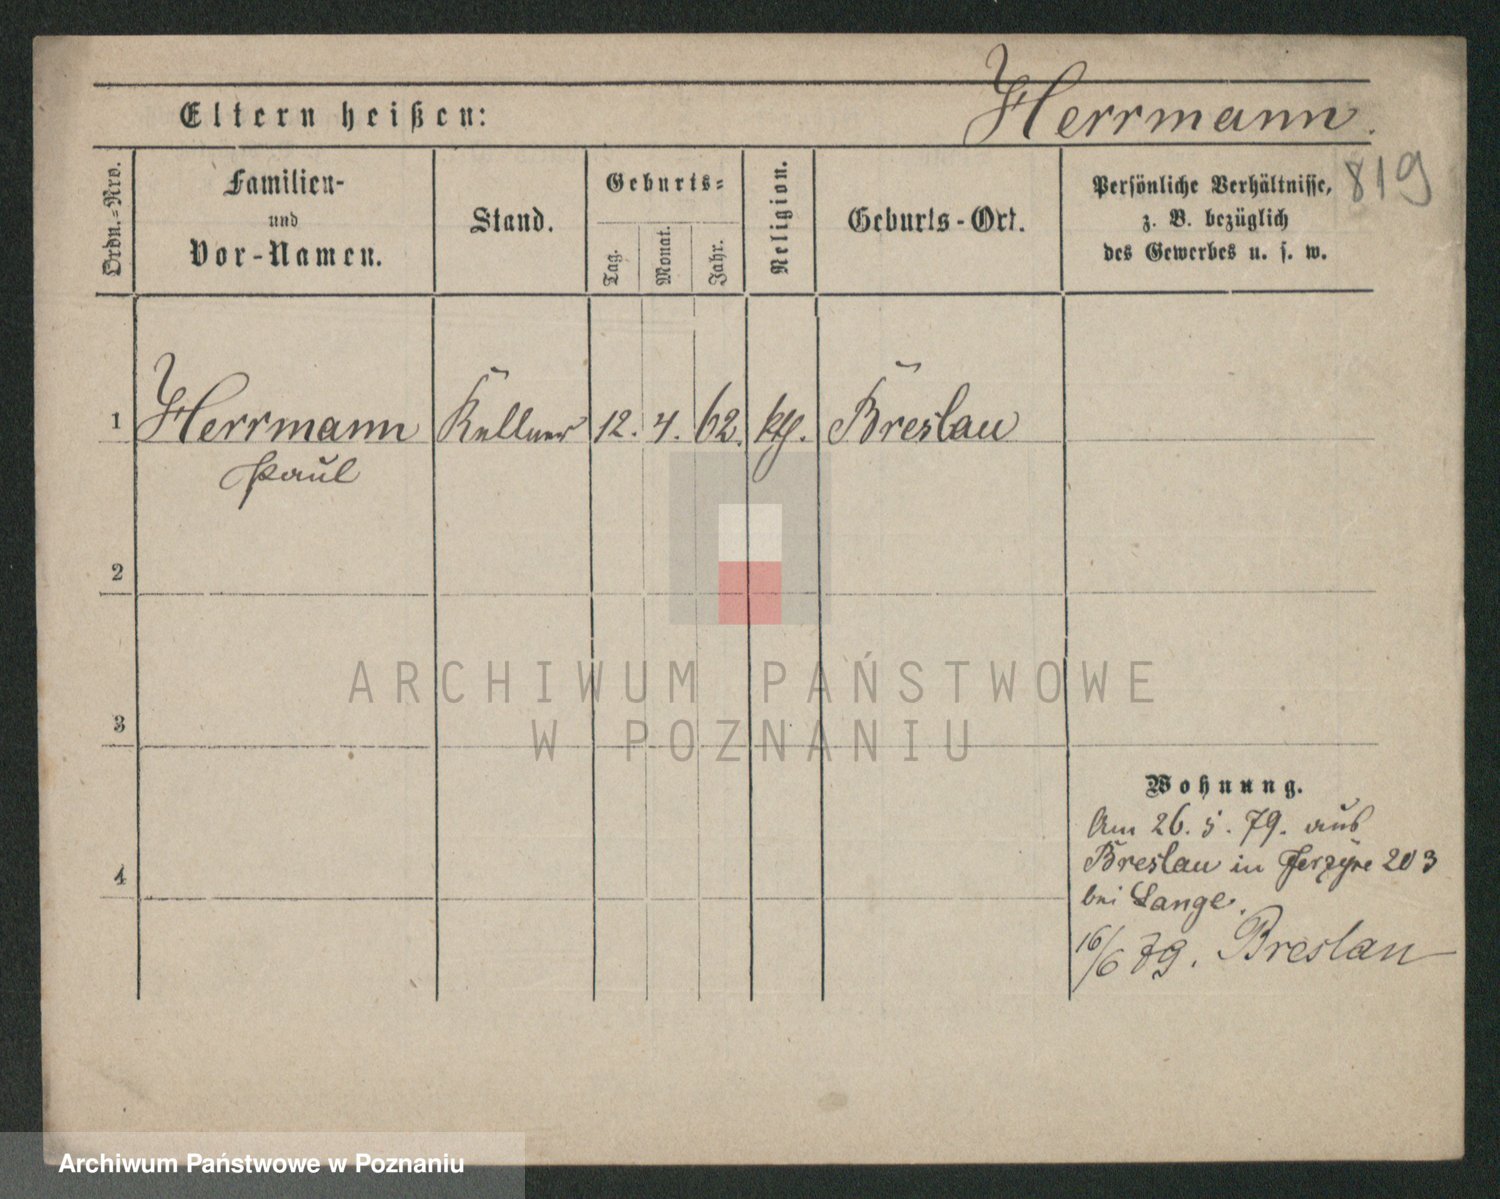 Herrmann.
Eltern heißen:
819
Ordn.-Nro.
Familien-
und
Vor-Namen.
Stand.
Geburts-
Tag.
Monat.
Jahr.
Religion.
Geburts-Ort.
Persönliche Verhältnisse,
z. B. bezüglich
des Gewerbes u. s. w.
1 Herrmann Kellner 12. 4. 62. kth. Breslau
Paul
2
3
4
Wohnung.
Am 26. 5. 79. aus
Breslau in Jerzyce 203
bei Lange.
16/6 79. Breslau
ARCHIWUM PAŃSTWOWE
W POZNANIU
Archiwum Państwowe w Poznaniu